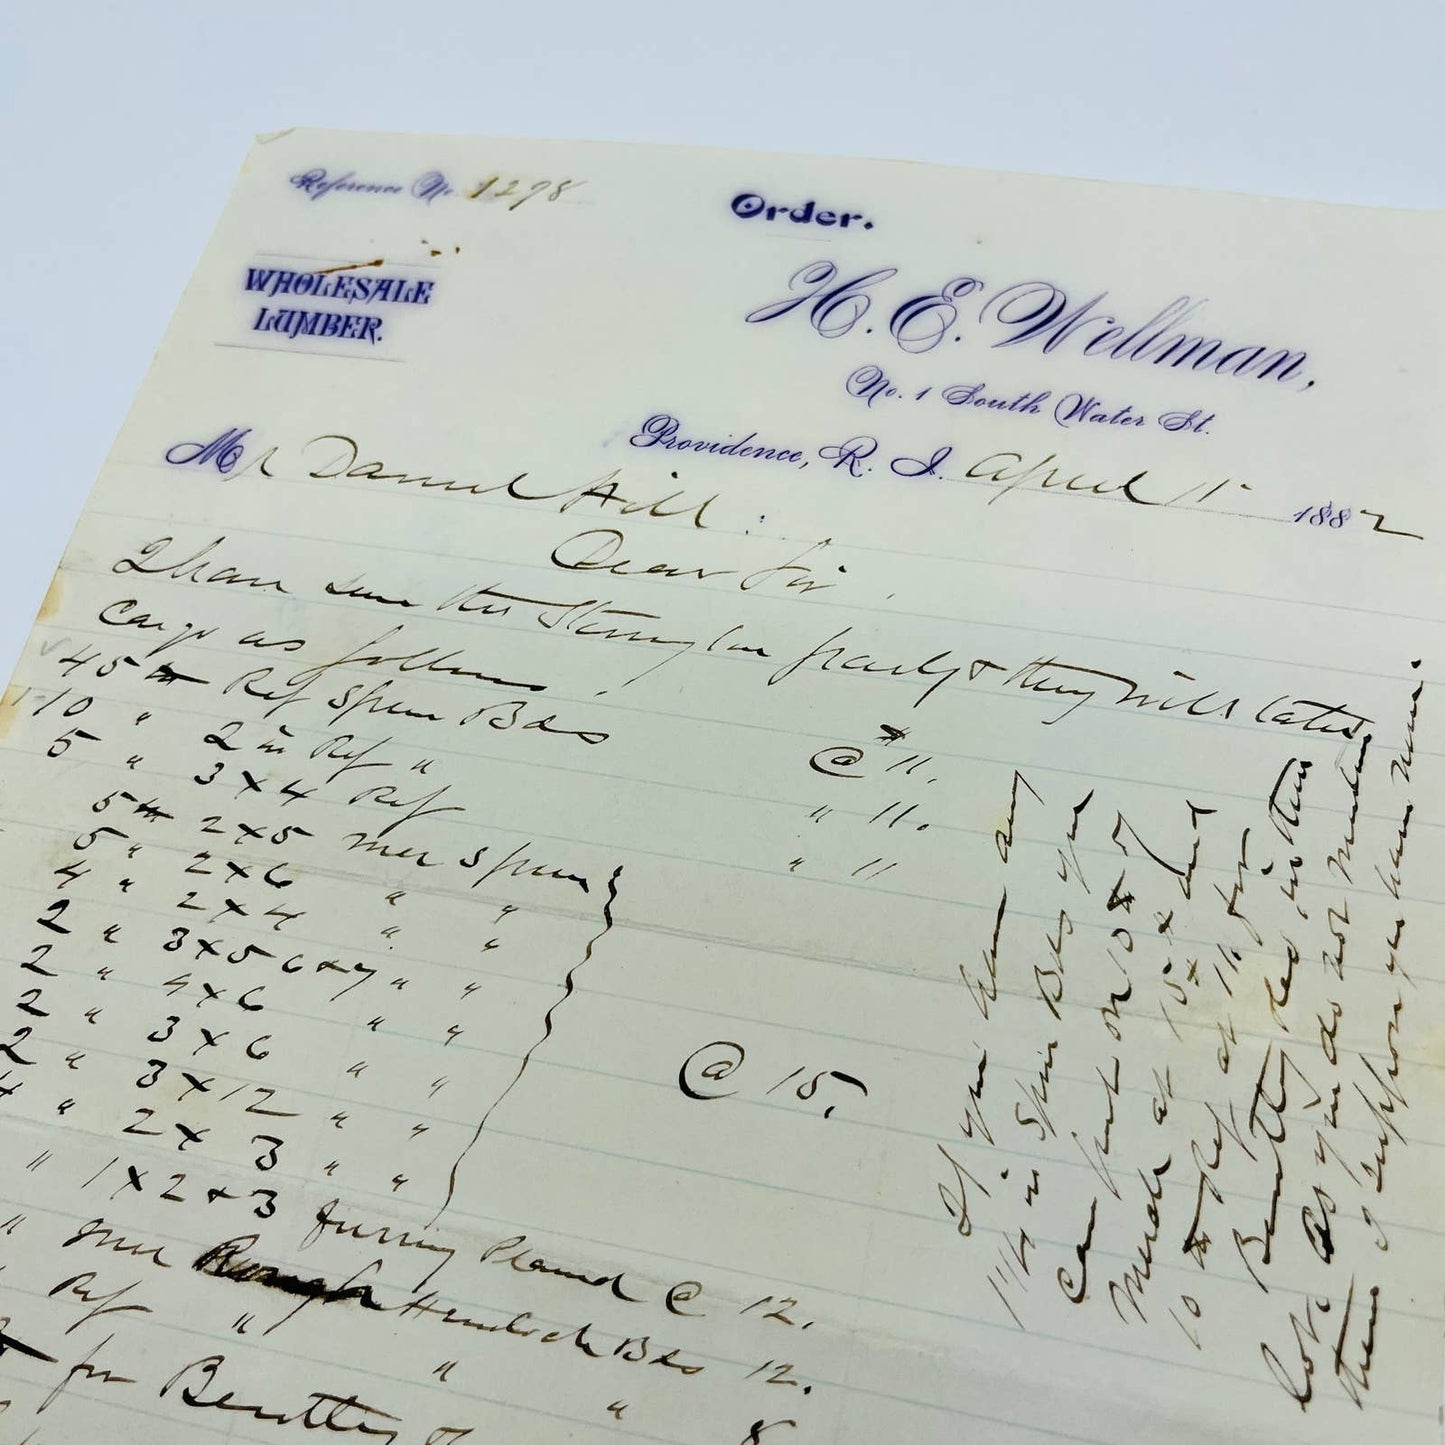 Reference No. 1298
Order.
WHOLESALE
LUMBER.
H. E. Wellman,
No. 1 South Water St.
Providence, R. I. April 15 1882
Mr Daniel Hill :
Dear Sir,
I have seen the Stonington parties & they will take
Cargo as follows.
45 m Ref Spruce Bds @ $11.
10 " 2 in Ref " " 11.
5 " 3 x 4 Ref " 11
5 m 2 x 5 Mer Spruce
5 " 2 x 6 " "
4 " 2 x 4 " "
2 " 3 x 5 6 & 7 " "
2 " 4 x 6 " "
2 " 3 x 6 " "
2 " 3 x 12 " "
4 " 2 x 3 " "
@ 15.
" 1 x 2 & 3 furring Planed @ 12.
" Mer Hemlock Bds 12.
Ref " " " 8
for Bentley
If you have any
1 1/4 in Spruce Bds you
can put on 10 m of
Merch at 15 & and
10 m Ref at 11. for
Bentley in this
lot. As you do not
them I suppose you have none.